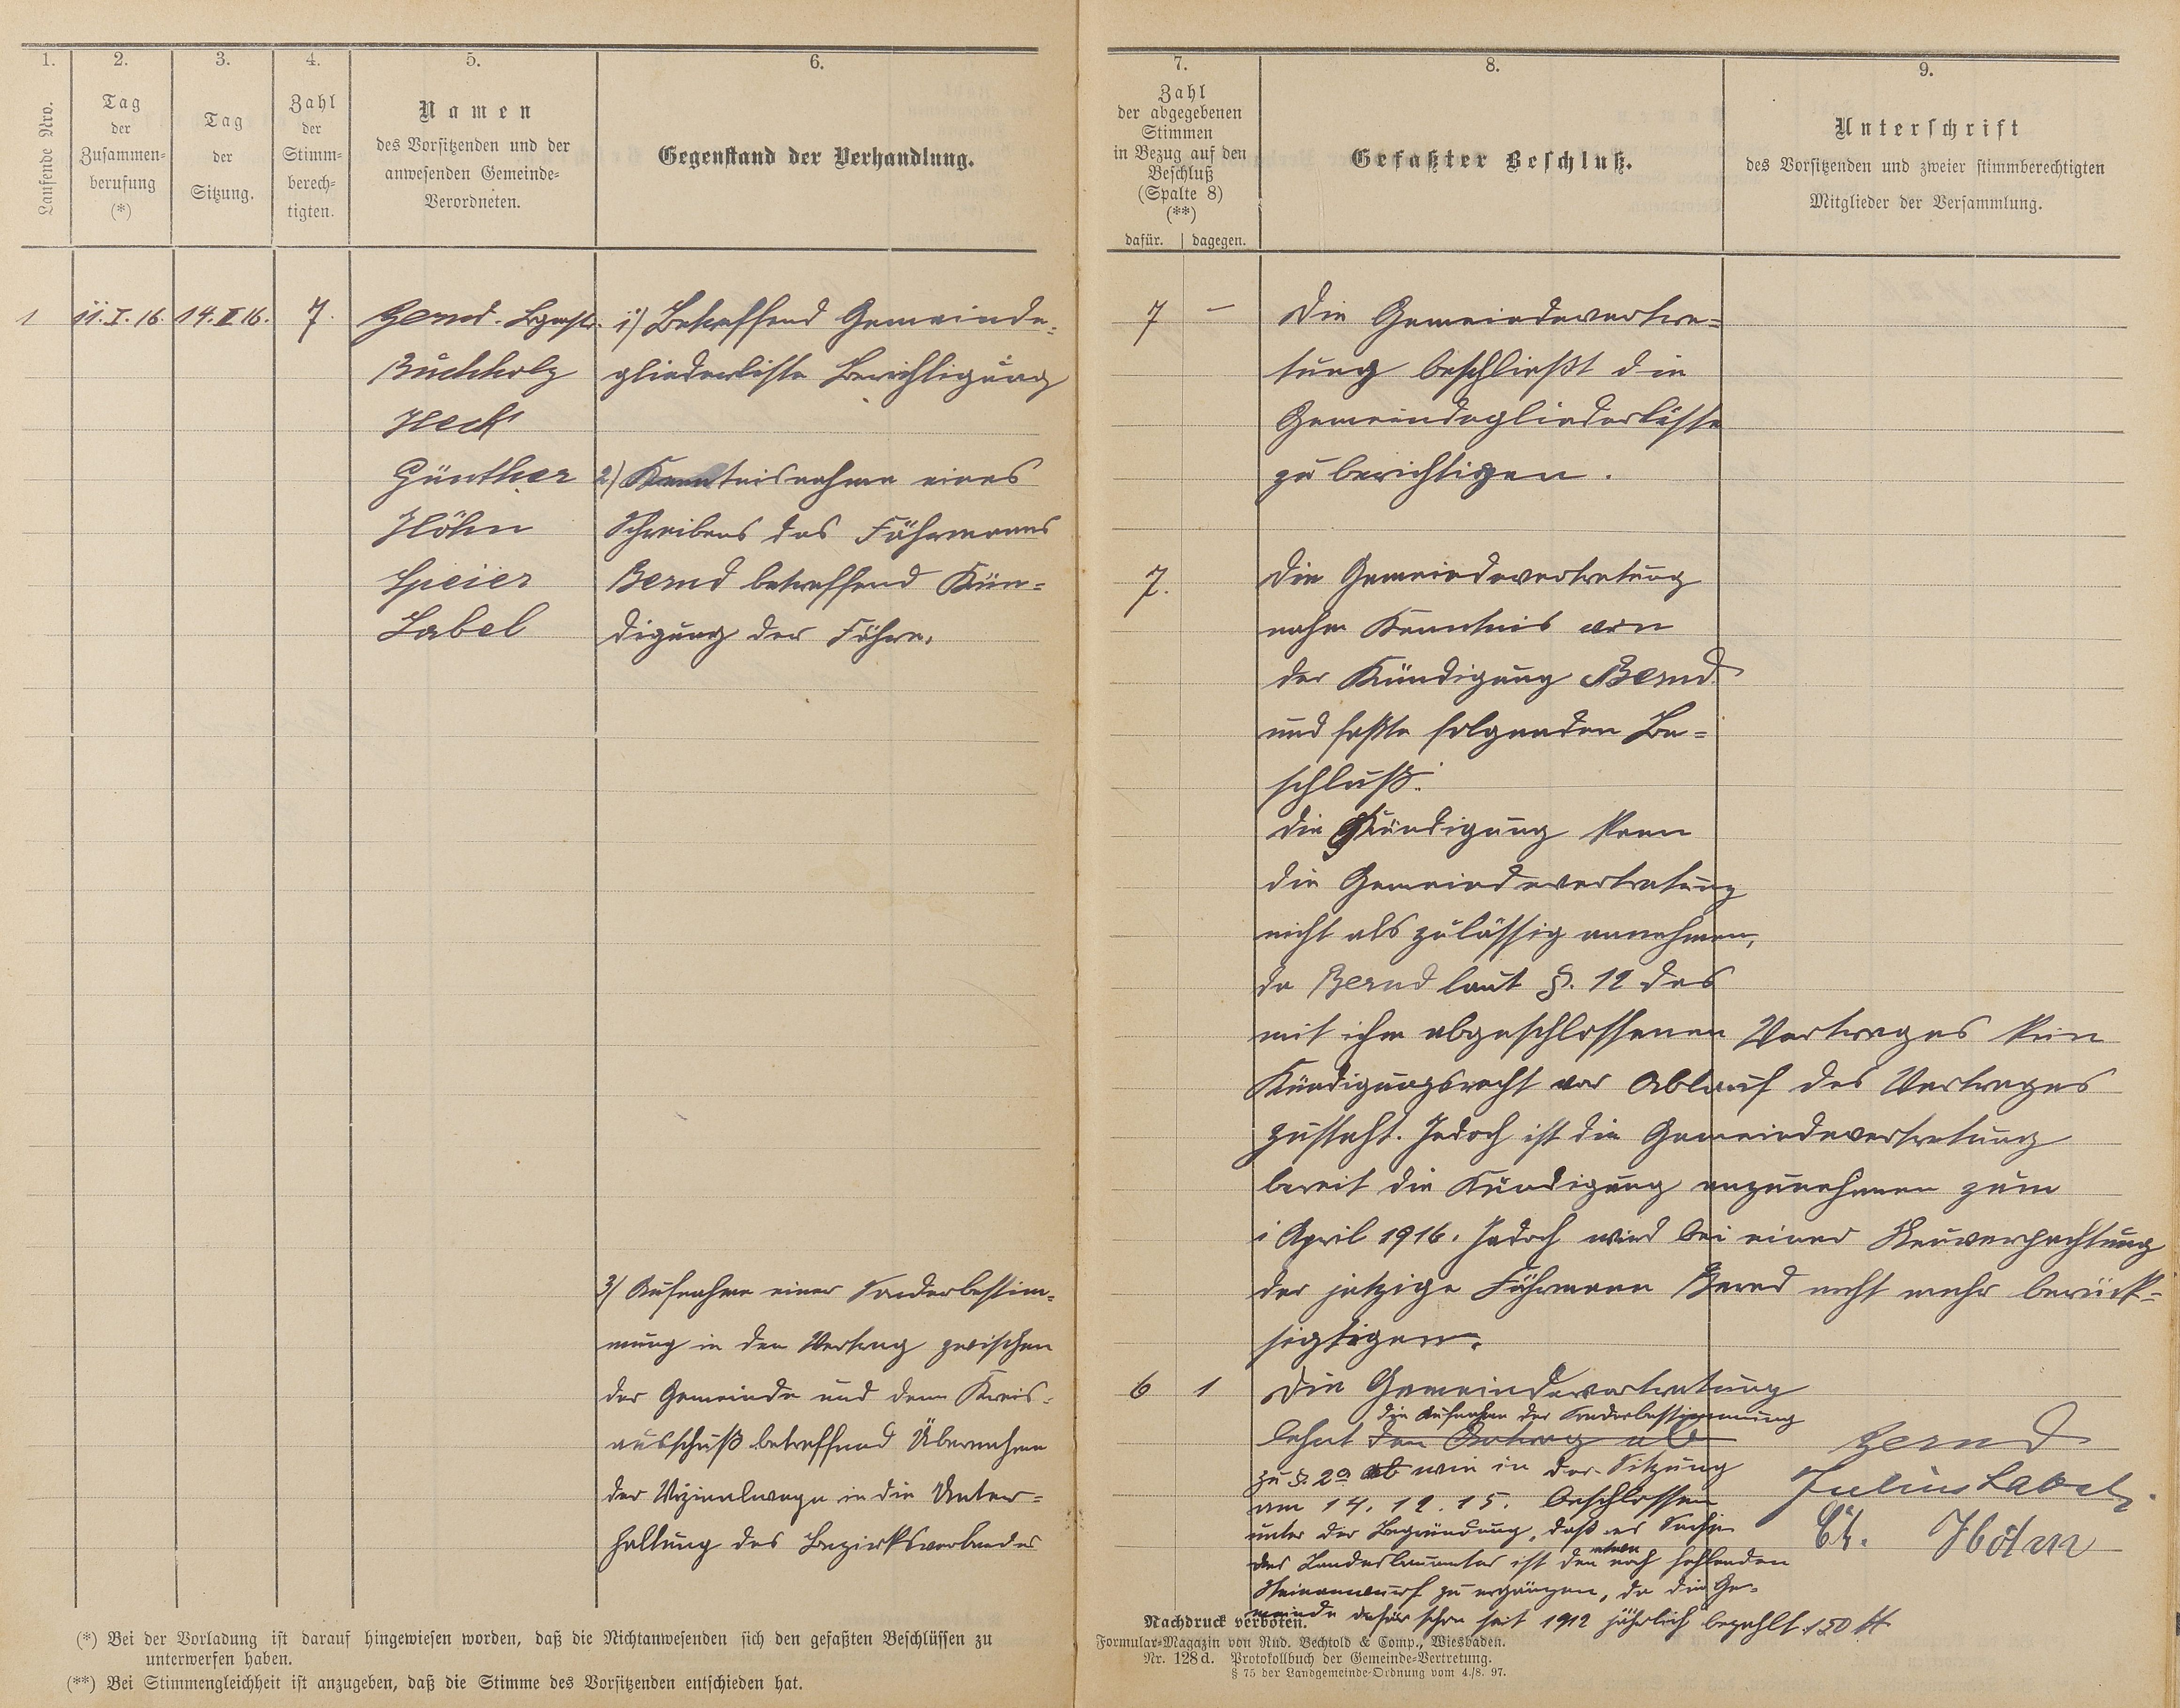 1.
Laufende Nro.
2.
Tag
der
Zusammen-
berufung
(*)
3.
Tag
der
Sitzung.
4.
Zahl
der
Stimm-
berech-
tigten.
5.
Namen
des Vorsitzenden und der
anwesenden Gemeinde-
Verordneten.
6.
Gegenstand der Verhandlung.
1
11. I. 16.
14. II 16.
7.
Zernd. Bgmstr.
Buchholz
Heck
Günther
Höhn
Speier
Label
1) Betreffend Gemeinde-
gliederliste Berichtigung
2) Kenntnisnahme eines
Schreibens des Fährmanns
Bernd betreffend Kün-
digung der Fähre.
3) Aufnahme einer Sonderbestim-
mung in den Vertrag zwischen
der Gemeinde und dem Kreis-
ausschuß betreffend Übernahme
der Vizinalwege in die Unter-
haltung des Bezirksverbandes
(*) Bei der Vorladung ist darauf hingewiesen worden, daß die Nichtanwesenden sich den gefaßten Beschlüssen zu
unterwerfen haben.
(**) Bei Stimmengleichheit ist anzugeben, daß die Stimme des Vorsitzenden entschieden hat.
7.
Zahl
der abgegebenen
Stimmen
in Bezug auf den
Beschluß
(Spalte 8)
(**)
dafür. | dagegen.
8.
Gefaßter Beschluß.
9.
Unterschrift
des Vorsitzenden und zweier stimmberechtigten
Mitglieder der Versammlung.
7 –
Die Gemeindevertre-
tung beschließt die
Gemeindegliederliste
zu berichtigen.
7.
Die Gemeindevertretung
nahm Kenntnis von
der Kündigung Bernd
und faßte folgenden Be-
schluß:
Die Kündigung kann
die Gemeindevertretung
nicht als zulässig annehmen,
da Bernd laut §. 12 des
mit ihm abgeschlossenen Vertrages kein
Kündigungsrecht vor Ablauf des Vertrages
zusteht. Jedoch ist die Gemeindevertretung
bereit die Kündigung anzunehmen zum
1 April 1916. Jedoch wird bei einer Neuverpachtung
der jetzige Fährmann Bernd nicht mehr berück-
sigtigen.
6 1
Die Gemeindevertretung
die Aufnahme der Sonderbestimmung
lehnt den Antrag ab
zu §. 2a ab wie in der Sitzung
am 14. 12. 15. beschlossen
unter der Begründung, daß es Sache
des Landesbauamtes ist den etwa noch fehlenden
Steinauwurf zu ergänzen, da die Ge-
meinde dafür schon seit 1912 jährlich bezahlt 150 M
Zernd
Julius Label.
Höhn
Nachdruck verboten.
Formular-Magazin von Rud. Bechtold & Comp., Wiesbaden.
Nr. 128d. Protokollbuch der Gemeinde-Vertretung.
§ 75 der Landgemeinde-Ordnung vom 4./8. 97.